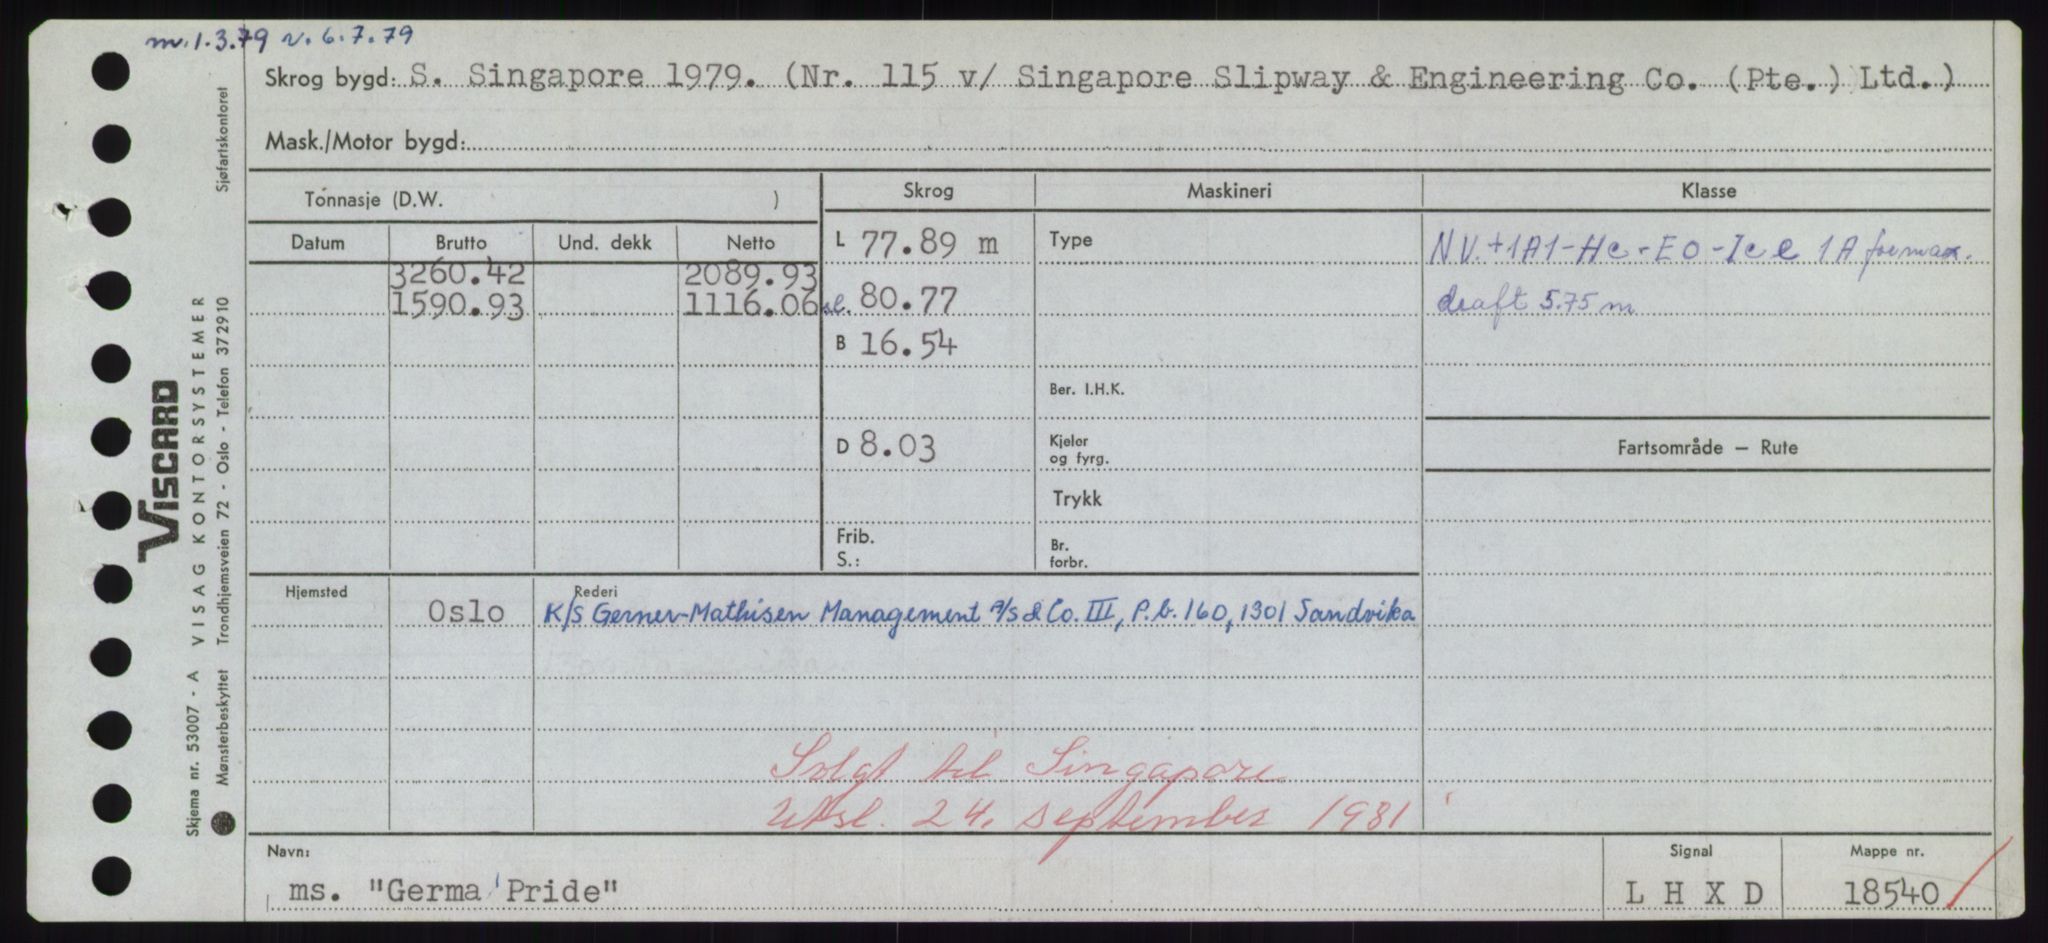 m. 1.3.79 v. 6.7.79
Skrog bygd: S. Singapore 1979. (Nr. 115 v/ Singapore Slipway & Engineering Co. (Pte.) Ltd.)
Mask./Motor bygd:
Tonnasje (D.W. )
Skrog
Maskineri
Klasse
Datum Brutto Und. dekk Netto
3260.42 2089.93
1590.93 1116.06
L 77.89 m
sl. 80.77
B 16.54
D 8.03
Frib.
S.:
Type
Ber. I.H.K.
Kjeler
og fyrg.
Trykk
Br.
forbr.
NV.+1A1-Hc-EO-Ice 1A for max.
draft 5.75 m
Fartsområde — Rute
Hjemsted Rederi
Oslo K/S Gerner-Mathisen Management A/S & Co. III, P.b. 160, 1301 Sandvika
Solgt til Singapore
Utsl. 24. september 1981
Navn: Signal Mappe nr.
ms. "Germa Pride" L H X D 18540
VISCARD
Skjema nr. 53007 - A VISAG KONTORSYSTEMER
Mønsterbeskyttet Trondhjemsveien 72 - Oslo - Telefon 372910 Sjøfartskontoret